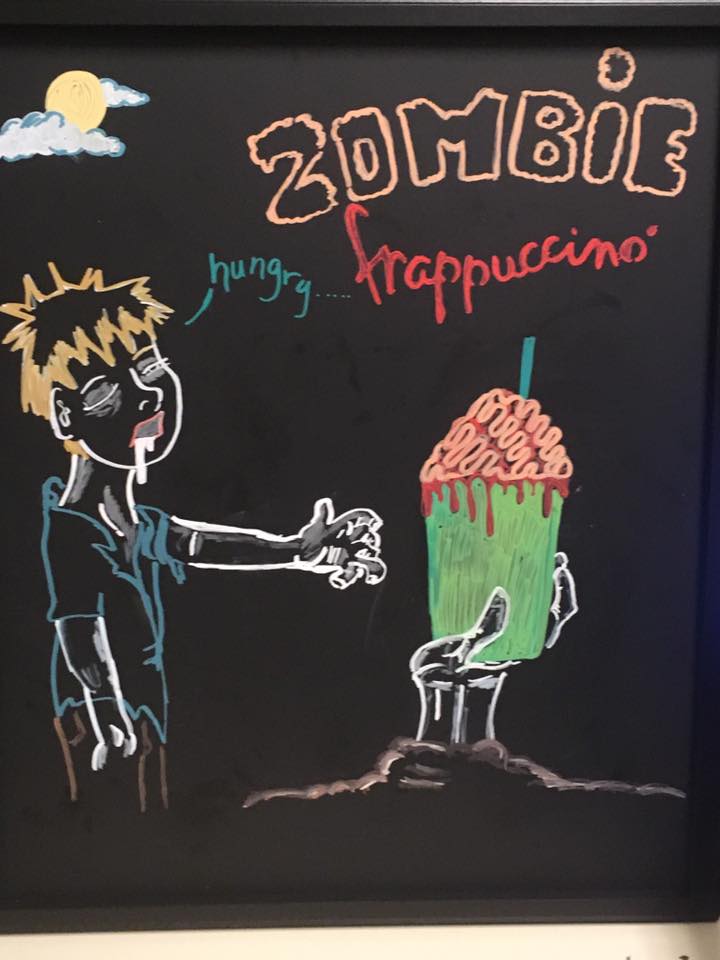 ZOMBiE
frappuccino
hungry.....